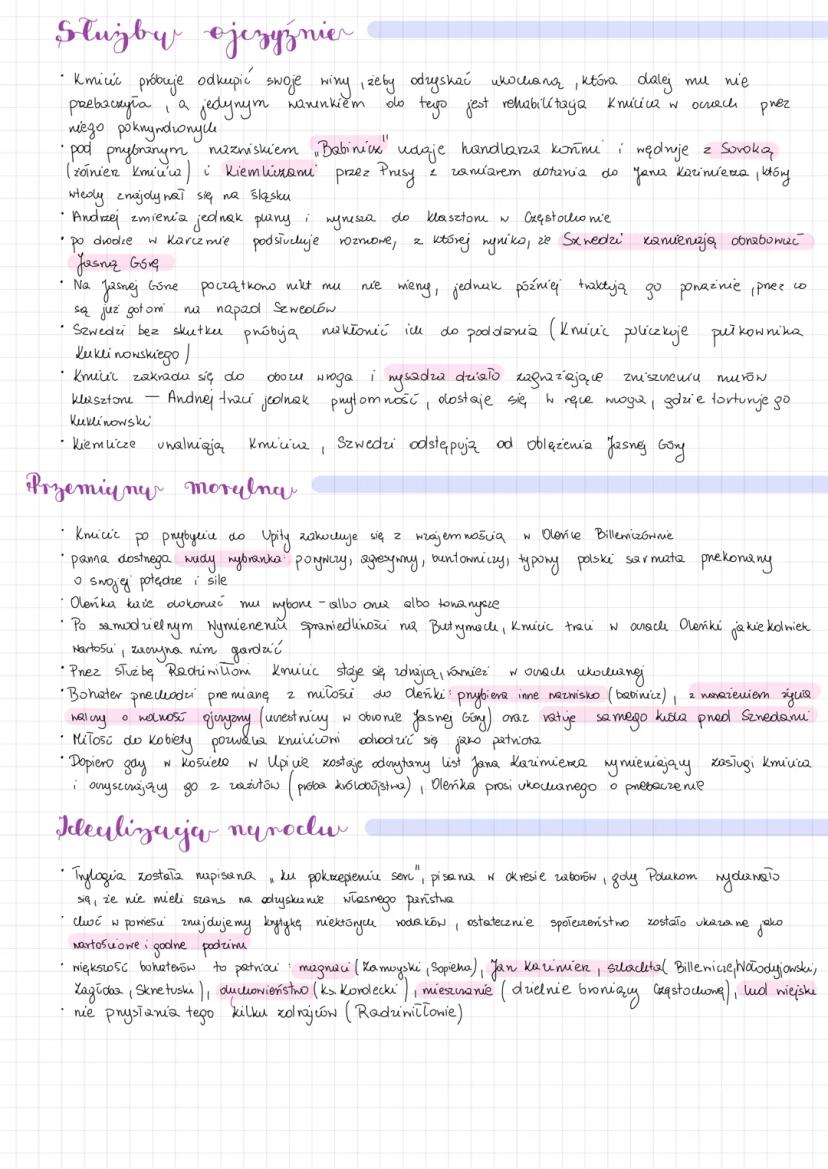 Służby ojczyźnie
• Kmicic próbuje odkupić swoje winy, żeby odzyskać ukochaną, która dalej mu nie
przebaczyła, a jedynym warunkiem do tego jest rehabilitacja Kmicica w oczach przez
niego pokrzywdzonych
• pod przybranym nazwiskiem "Babinicz" udaje handlarza końmi i wędruje z Soroką
(żołnierz Kmicica) i Kiemliczami przez Prusy z zamiarem dotarcia do Jana Kazimierza, który
wtedy znajdywał się na Śląsku
• Andrzej zmienia jednak plany i wyrusza do klasztoru w Częstochowie
• po drodze w Karczmie podsłuchuje rozmowę, z której wynika, że Szwedzi zamierzają obrabować
Jasną Górę
• Na Jasnej Górze początkowo nikt mu nie wierzy, jednak później traktują go poważnie, przez co
są już gotowi na napad Szwedów
• Szwedzi bez skutku próbują nakłonić ich do poddania (Kmicic policzkuje pułkownika
Kuklinowskiego)
• Kmicic zakrada się do obozu wroga i wysadza działo zagrażające zniszczeniu murów
klasztoru — Andrzej traci jednak przytomność, dostaje się w ręce wroga, gdzie torturuje go
Kuklinowski
• Kiemlicze uwalniają Kmicica, Szwedzi odstępują od oblężenia Jasnej Góry
Przemiana moralna
• Kmicic po przybyciu do Upity zakochuje się z wzajemnością w Oleńce Billewiczównie
• panna dostrzega wady wybranka: porywczy, agresywny, buntowniczy, typowy polski sarmata przekonany
o swojej potędze i sile
• Oleńka każe dokonać mu wyboru - albo ona albo towarzysze
• Po samodzielnym wymierzeniu sprawiedliwości na Butrymach, Kmicic traci w oczach Oleńki jakiekolwiek
wartości, zaczyna nim gardzić
• Przez służbę Radziwiłłowi Kmicic staje się zdrajcą, również w oczach ukochanej
• Bohater przechodzi przemianę z miłości do Oleńki: przybiera inne nazwisko (babinicz), z narażeniem życia
walczy o wolność ojczyzny (uczestniczy w obronie Jasnej Góry) oraz ratuje samego króla przed Szwedami
• Miłość do kobiety pozwala Kmicicowi odrodzić się jako patriota
• Dopiero gdy w kościele w Upicie zostaje odczytany list Jana Kazimierza wymieniający zasługi Kmicica
i oczyszczający go z zarzutów (próba królobójstwa), Oleńka prosi ukochanego o przebaczenie
Idealizacja narodu
• Trylogia została napisana „ku pokrzepieniu serc", pisana w okresie zaborów, gdy Polakom wydawało
się, że nie mieli szans na odzyskanie własnego państwa
• choć w powieści znajdujemy krytykę niektórych rodaków, ostatecznie społeczeństwo zostało ukazane jako
wartościowe i godne podziwu
• większość bohaterów to patrioci: magnaci (Zamoyski, Sapieha), Jan Kazimierz, szlachta (Billewicze, Wołodyjowski,
Zagłoba, Skrzetuski), duchowieństwo (ks. Kordecki), mieszczanie (dzielnie broniący Częstochowę), lud wiejski
• nie przysłania tego kilku zdrajców (Radziwiłłowie)